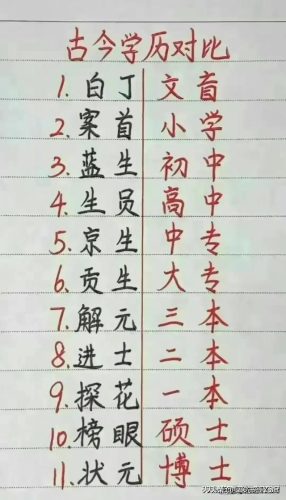 古今学历对比
1. 白丁 文盲
2. 案首 小学
3. 蓝生 初中
4. 生员 高中
5. 京生 中专
6. 贡生 大专
7. 解元 三本
8. 进士 二本
9. 探花 一本
10. 榜眼 硕士
11. 状元 博士